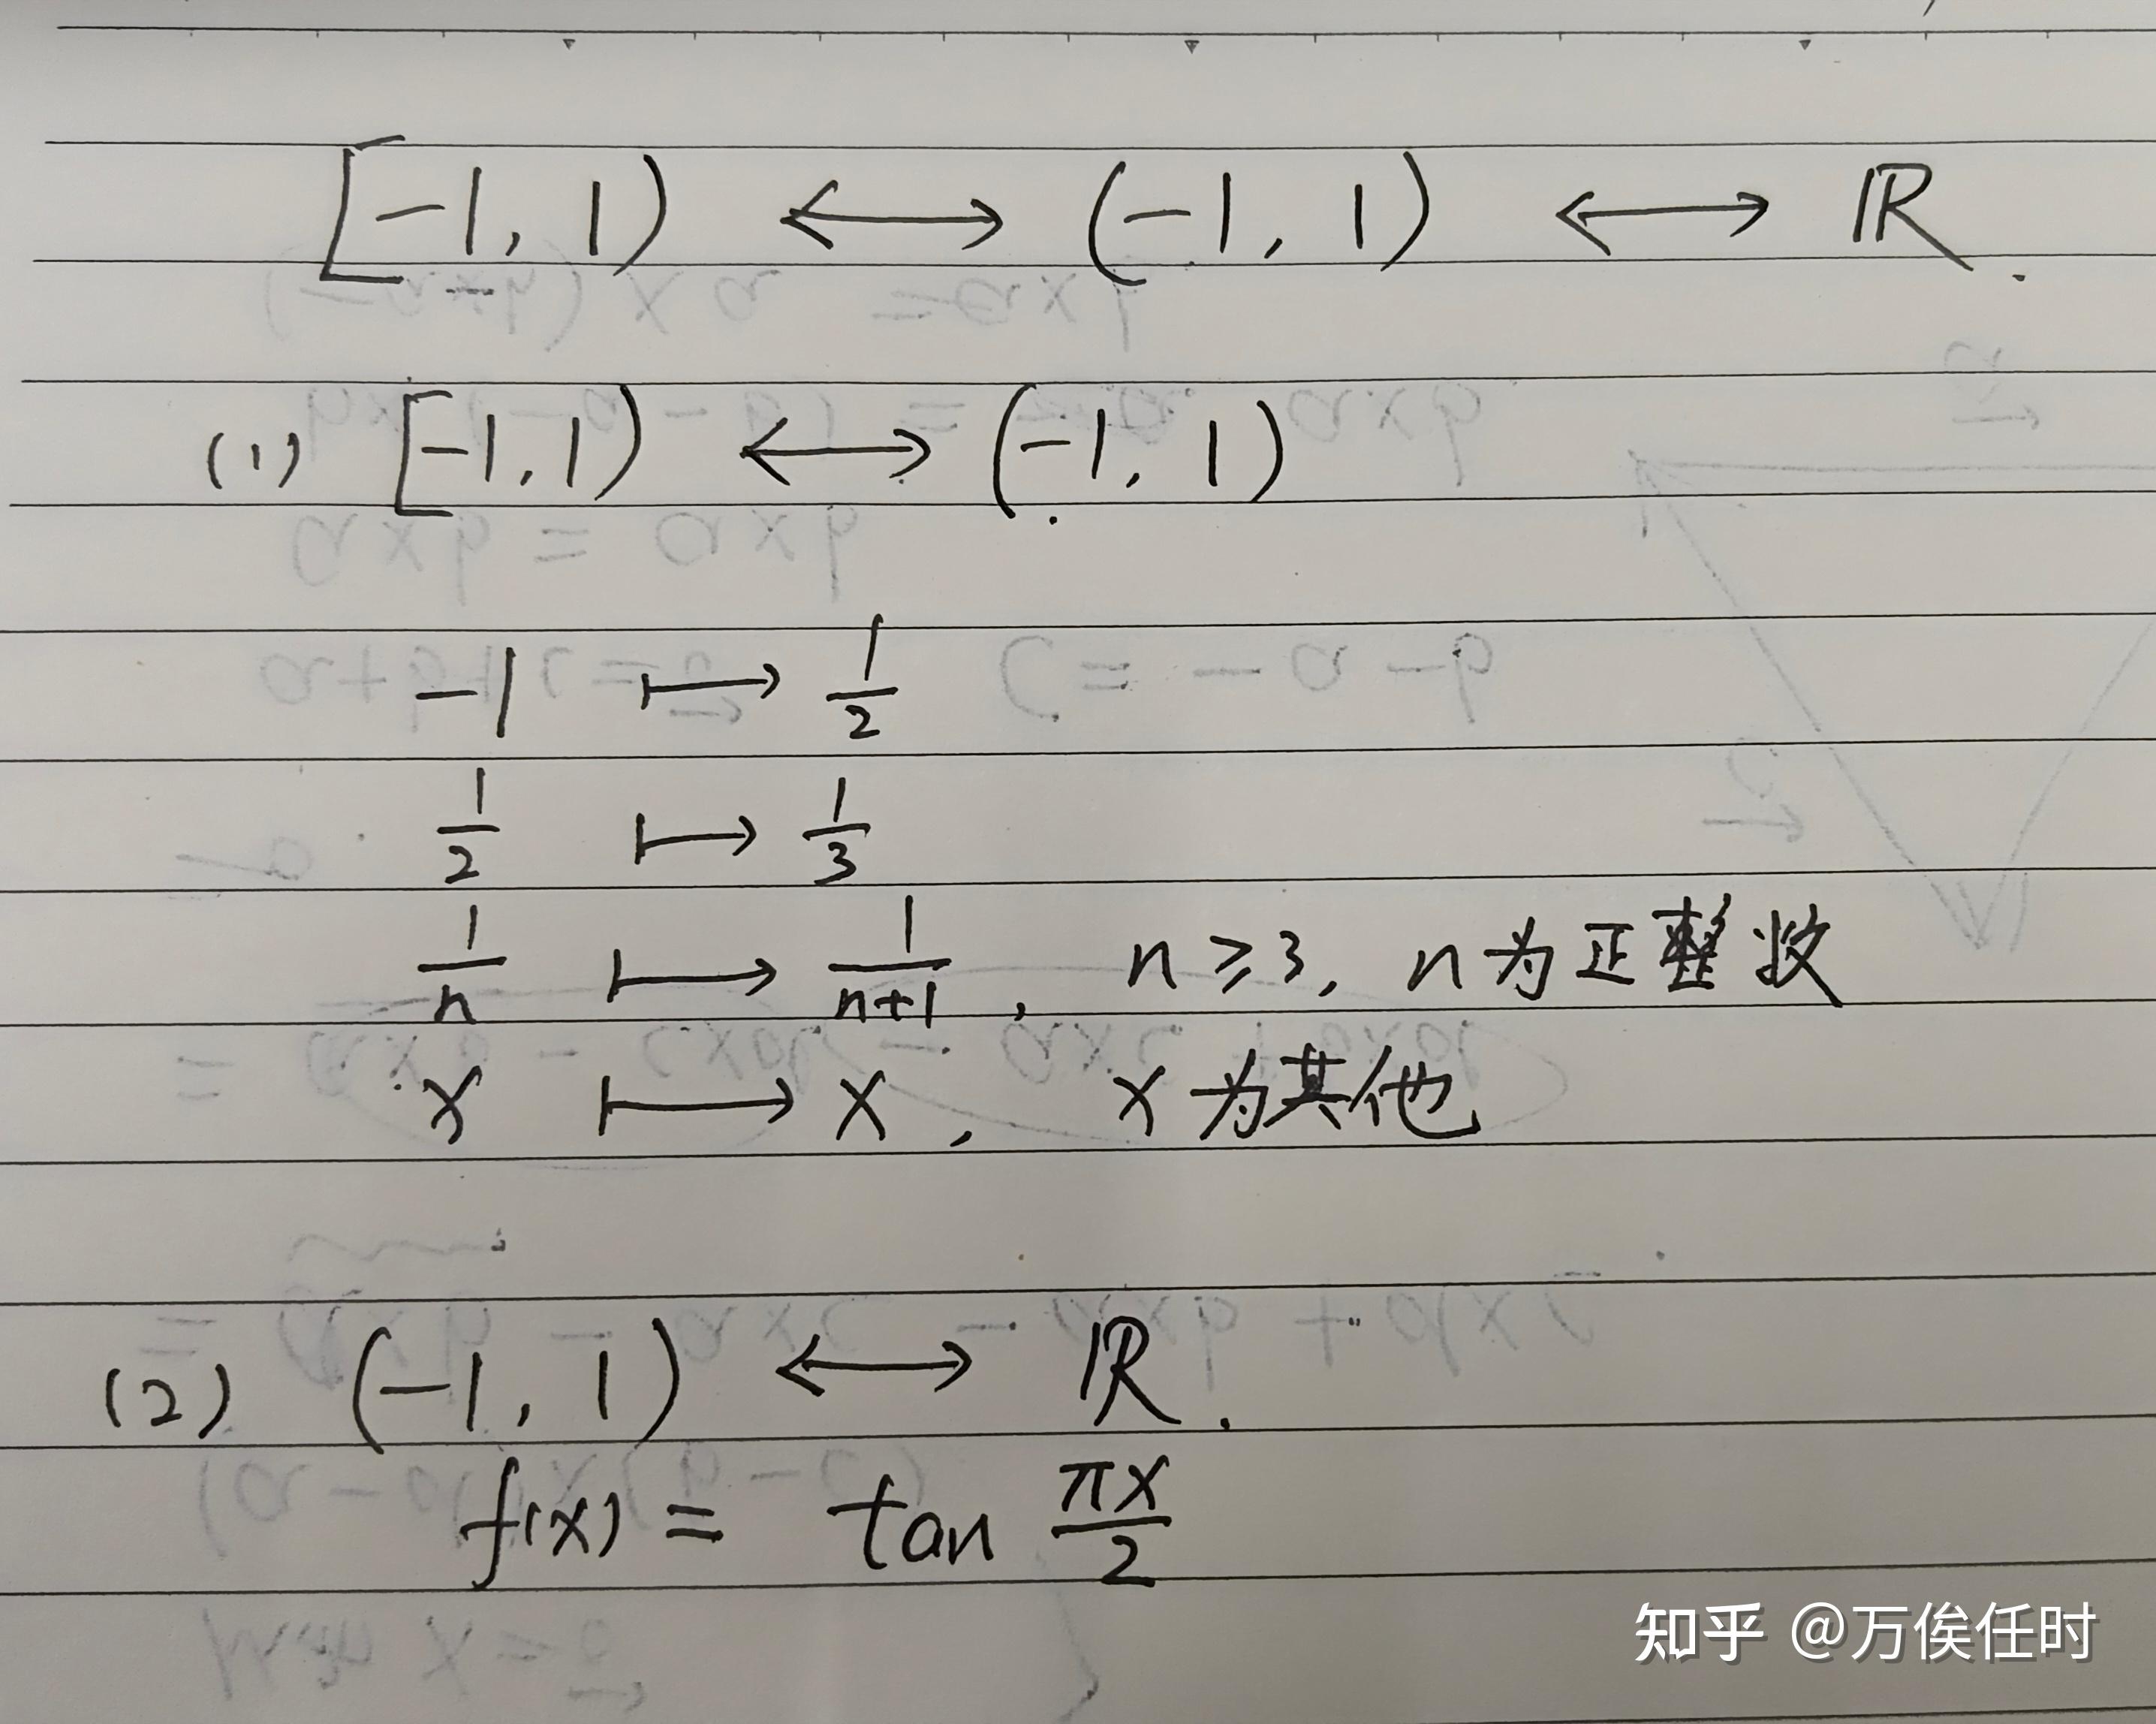 [-1, 1) ⟷ (-1, 1) ⟷ ℝ.
(1) [-1, 1) ⟷ (-1, 1)
-1 ↦ 1/2
1/2 ↦ 1/3
1/n ↦ 1/(n+1), n ≥ 3, n为正整数
x ↦ x, x为其他
(2) (-1, 1) ⟷ ℝ.
f(x) = tan πx/2
知乎 @万俟任时